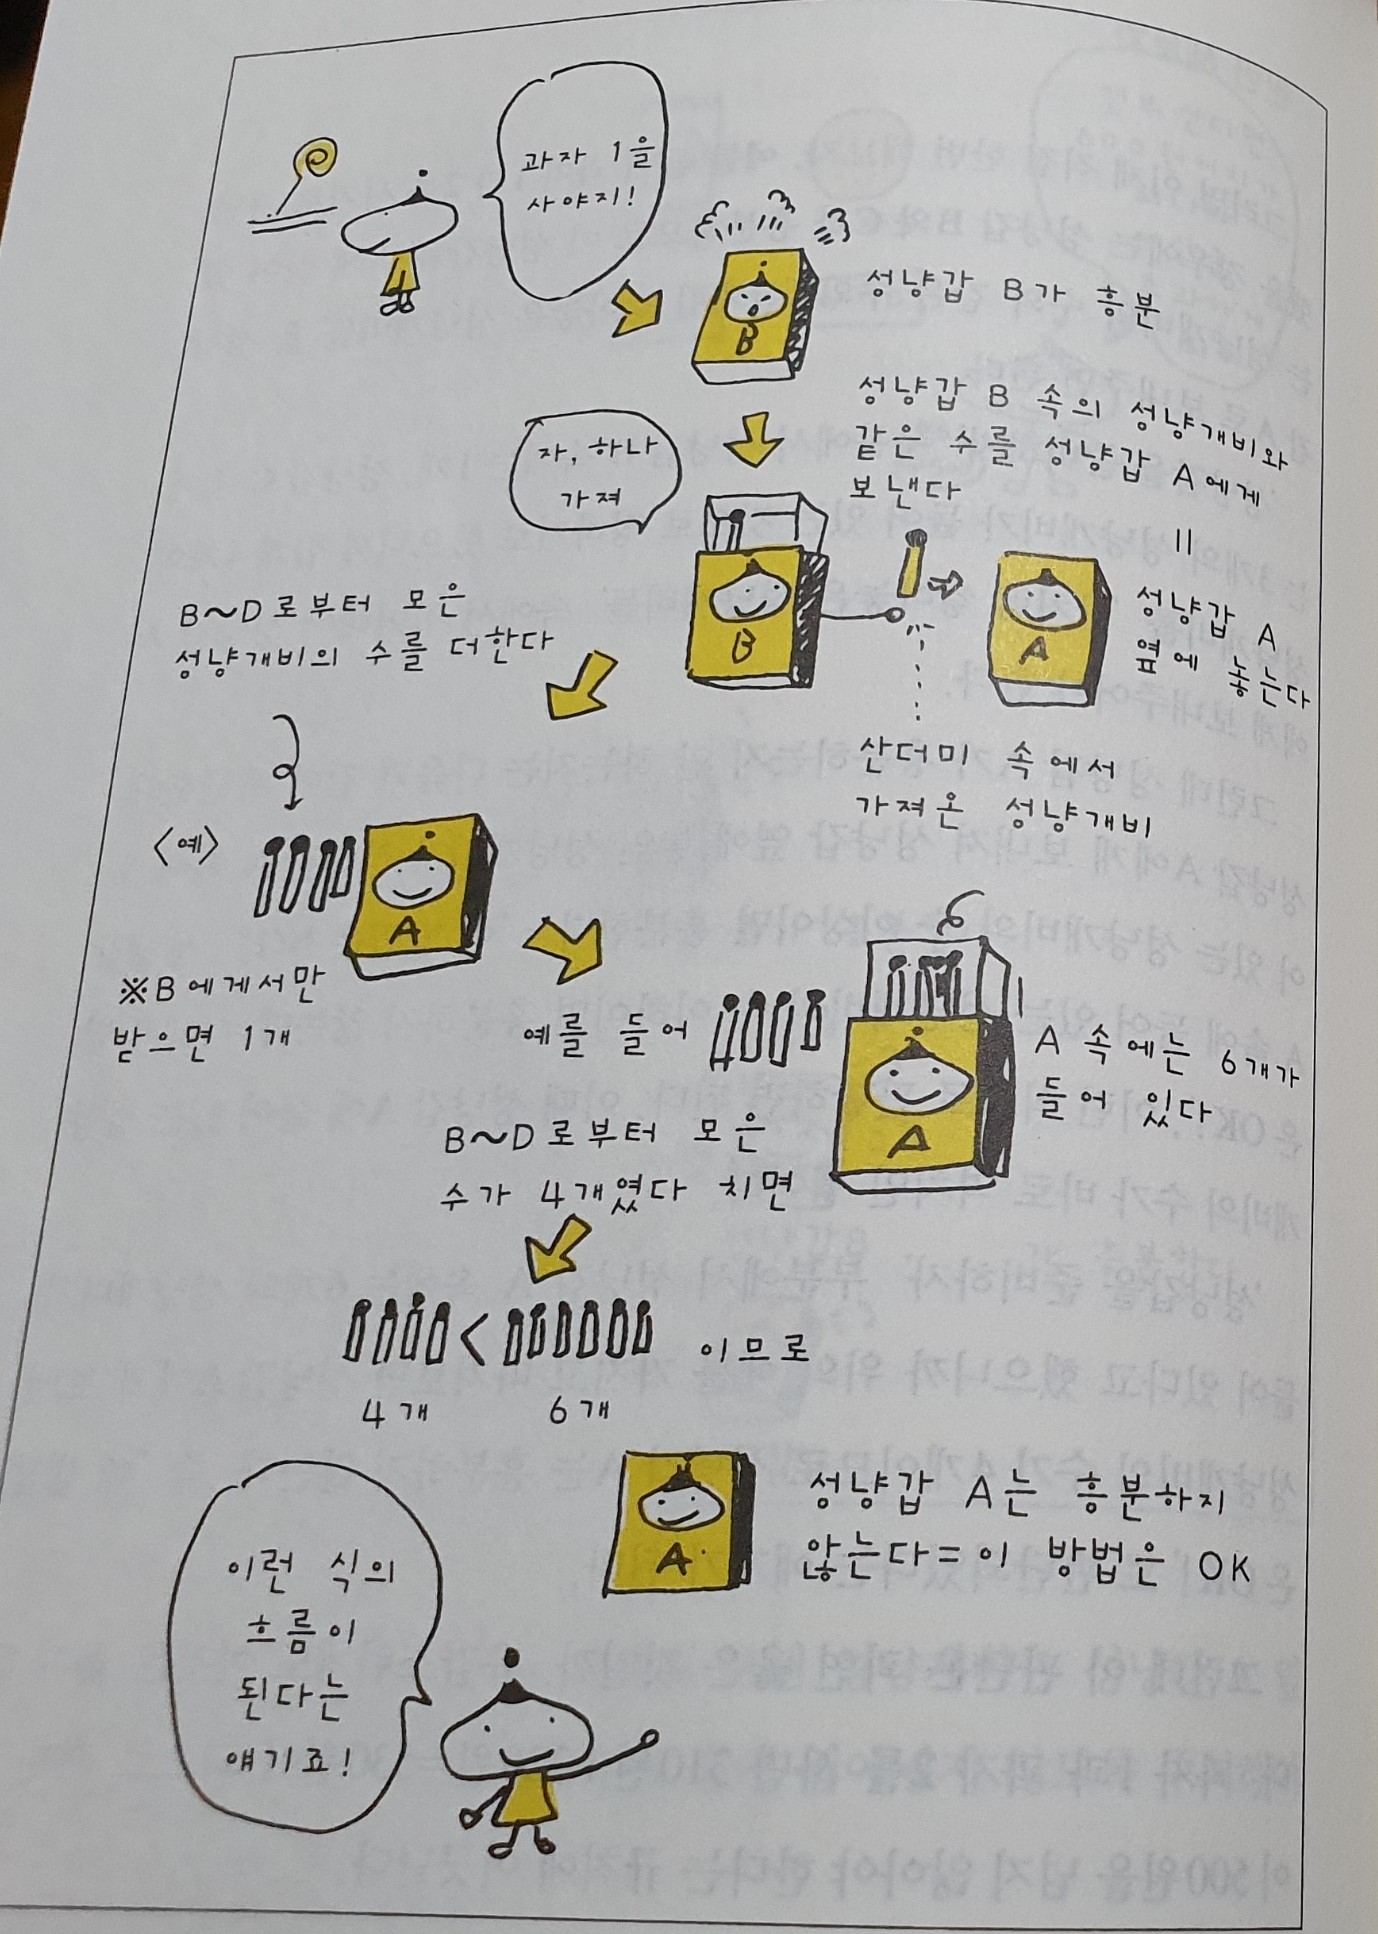 과자 1을
사야지!
B
성냥갑 B가 흥분
성냥갑 B 속의 성냥개비와
같은 수를 성냥갑 A에게
보낸다
=
성냥갑 A
옆에 놓는다
자, 하나
가져
B
A
산더미 속에서
가져온 성냥개비
B~D로부터 모은
성냥개비의 수를 더한다
<예>
A
※B에게서만
받으면 1개
예를 들어
B~D로부터 모은
수가 4개였다 치면
A
A 속에는 6개가
들어 있다
< 이므로
4개 6개
A
성냥갑 A는 흥분하지
않는다=이 방법은 OK
이런 식의
흐름이
된다는
얘기죠!